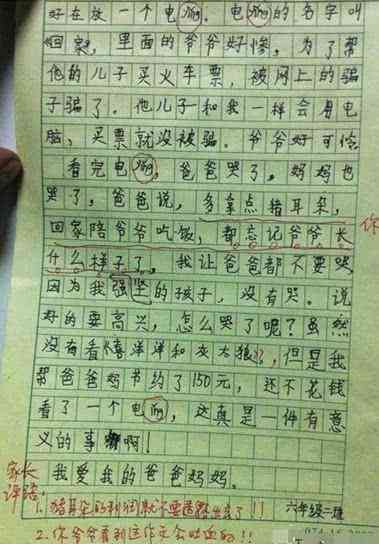 好在放一个电俩。电俩的名字叫
回家，里面的爷爷好惨。为了帮
他的儿子买火车票，被网上的骗
子骗了。他儿子和我一样会用电
脑，买票就没被骗。爷爷好可怜
看完电俩，爸爸哭了。妈妈也
哭了。爸爸说，多拿点猪耳朵，
回家陪爷爷吃饭，都忘记爷爷长
什么样子了。我让爸爸都不要哭，
因为我强坚的孩子，没有哭。说
好的要高兴，怎么哭了呢？虽然
没有看喜洋洋和灰太狼，但是我
帮爸爸妈节约了150元，还不花钱
看了一个电俩，这真是一件有意
义的事啊！
我爱我的爸爸妈妈。
家长
评语：
1.猪耳朵的利润就不要透露出去了!!
六年级二班
2.你爷爷看到这作文会吐血的!!
你